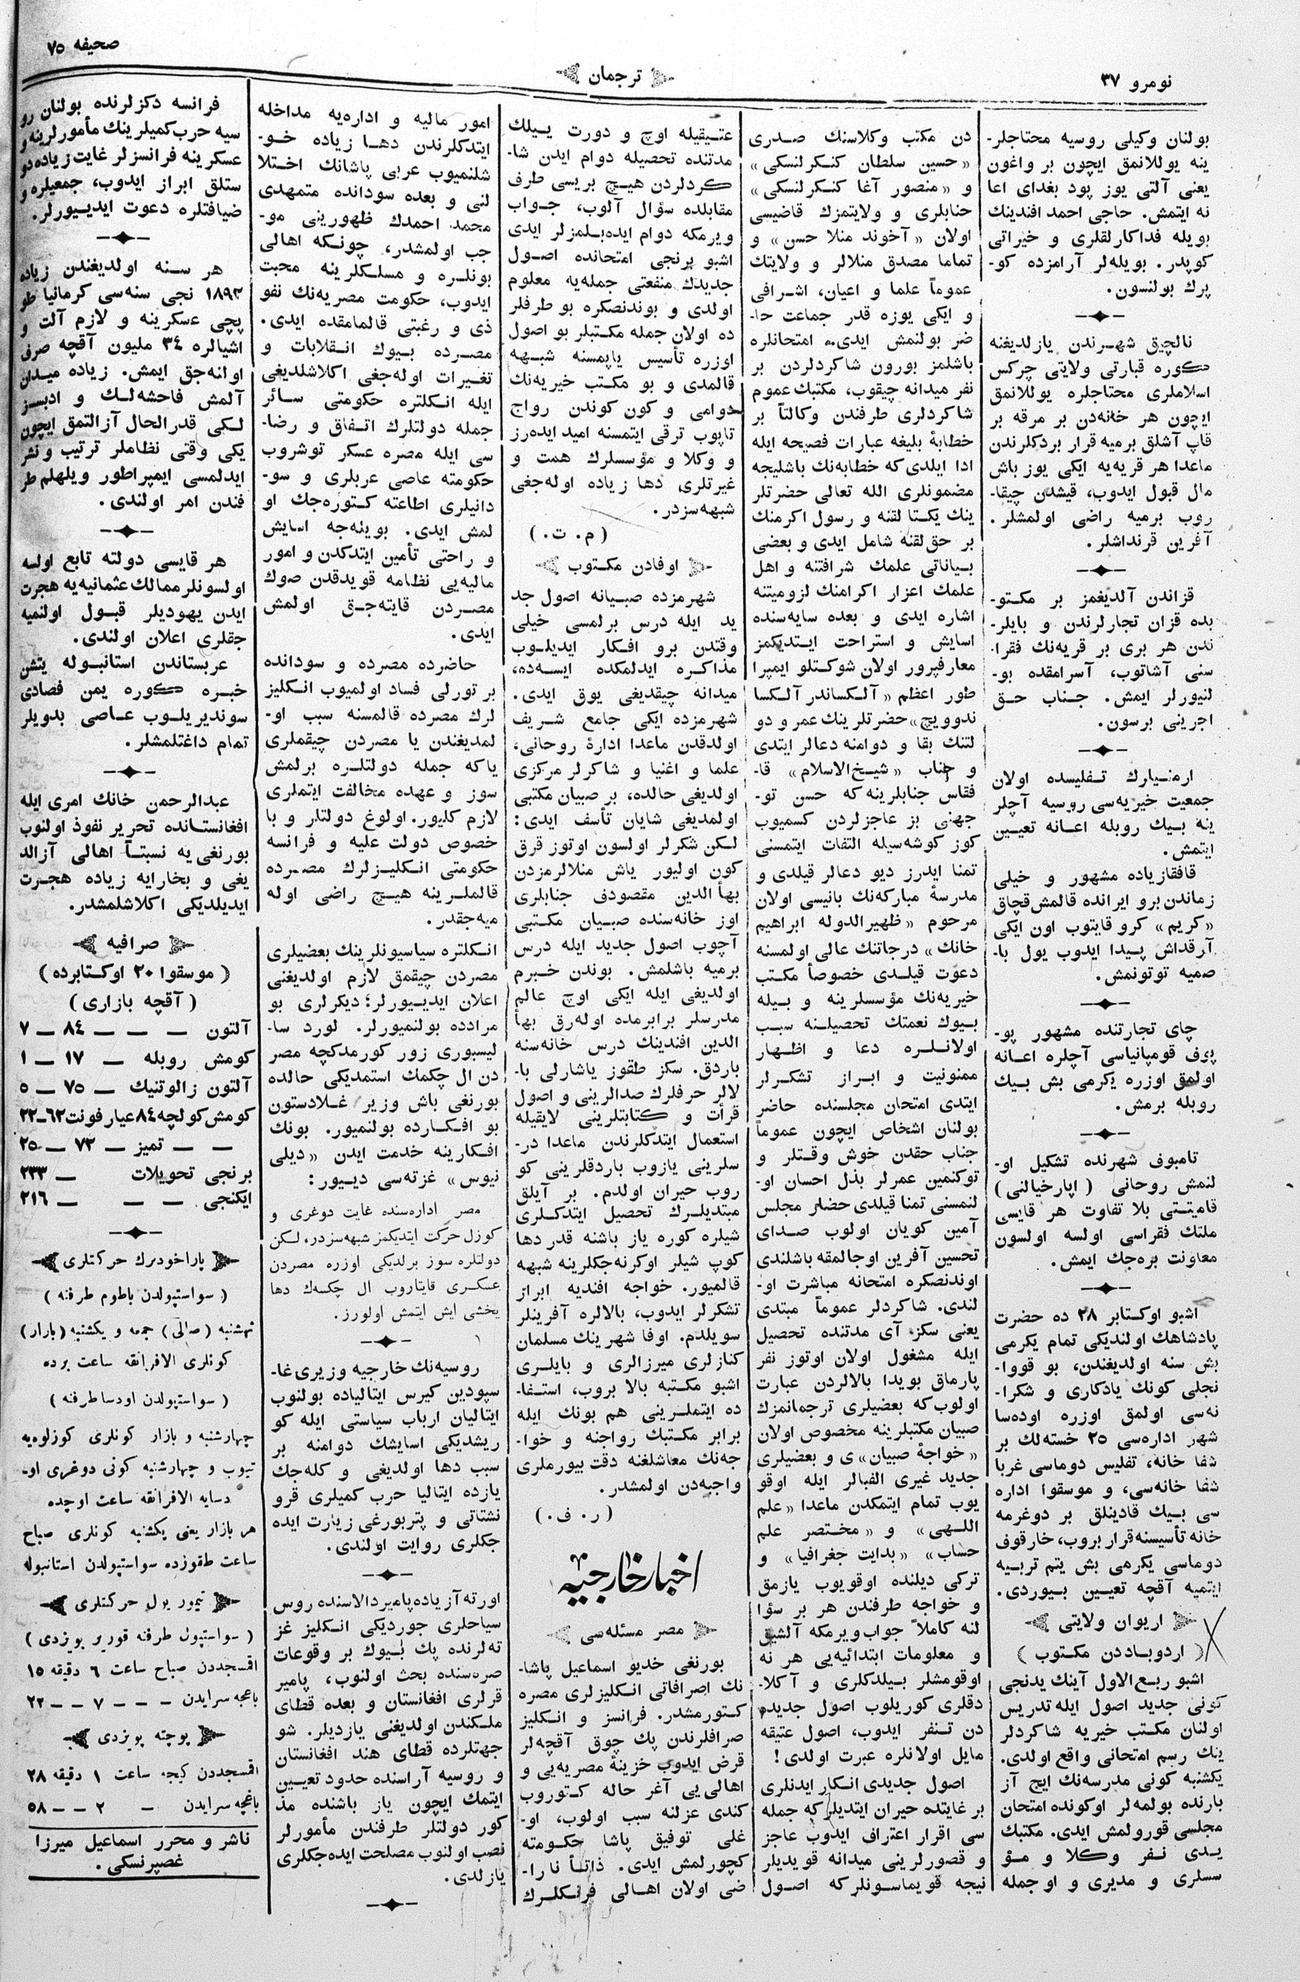 نومرو ٣٧
ترجمان
صحیفه ٧٥
بولنان وکیلی روسیه محتاجلر-
ینه یوللانمق ایچون بر واغون
یعنی آلتی یوز پود بغدای اعا
نه ایتمش. حاجی احمد افندینك
بویله فداکارلقلری و خیراتی
کوپدر. بویله‌لر آرامزده کو-
پرك بولنسون.
نالچیق شهرندن یازلدیغنه
کوره قبارتی ولایتی چرکس
اسلاملری محتاجلره یوللانمق
ایچون هر خانه‌دن بر مرقه بر
قاپ آشلق برمیه قرار بردکلرندن
ماعدا هر قریه‌یه ایکی یوز باش
مال قبول ایدوب، قیشدن چیقا-
روب برمیه راضی اولمشلر.
آفرین قرنداشلر.
قزاندن آلدیغمز بر مکتو-
بده قزان تجارلرندن و بایلر-
ندن هر بری بر قریه‌نك فقرا-
سنی آشاتوب، آسرامقده بو-
لنیورلر ایمش. جناب حق
اجرینی برسون.
ارمنیلرك تفلیسده اولان
جمعیت خیریه‌سی روسیه آچلر
ینه بیك روبله اعانه تعیین
ایتمش.
قافقازیاده مشهور و خیلی
زماندن برو ایرانده قالمش قچاق
«کریم» کرو قایتوب اون ایکی
آرقداش پیدا ایدوب یول با-
صمیه توتونمش.
چای تجارتنده مشهور پو-
پوف قومپانیاسی آچلره اعانه
اولمق اوزره یکرمی بش بیك
روبله برمش.
تامبوف شهرنده تشکیل او-
لنمش روحانی (اپارخیالنی)
قامیتتی بلا تفاوت هر قایسی
ملتك فقراسی اولسه اولسون
معاونت بره‌جك ایمش.
اشبو اوکتابر ٢٨ ده حضرت
پادشاهك اولندیکی تمام یکرمی
بش سنه اولدیغندن، بو قووا-
نجلی کونك یادکاری و شکرا-
نه‌سی اولمق اوزره اوده‌سا
شهر اداره‌سی ٢٥ خسته‌لك بر
شفا خانه، تفلیس دوماسی غربا
شفا خانه‌سی، و موسقوا اداره
سی بیك قادینلق بر دوغرمه
خانه تأسیسنه قرار بروب، خارقوف
دوماسی یکرمی بش یتم تربیه
ایتمیه آقچه تعیین بیوردی.
اریوان ولایتی
(اردوباددن مکتوب)
اشبو ربیع الاول آینك یدنجی
کونی جدید اصول ایله تدریس
اولنان مکتب خیریه شاکردلر
ینك رسم امتحانی واقع اولدی.
یکشنبه کونی مدرسه‌نك ایچ آز
بارنده بولمه‌لر اوکونده امتحان
مجلسی قورولمش ایدی. مکتبك
یدی نفر وکلا و مؤ
سسلری و مدیری و او جمله
دن مکتب وکلاسنك صدری
«حسین سلطان کنکرلنسکی»
و «منصور آغا کنکرلنسکی»
جنابلری و ولایتمزك قاضیسی
اولان «آخوند منلا حسن» و
تماما مصدق منلالر و ولایتك
عموماً علما و اعیان، اشرافی
و ایکی یوزه قدر جماعت حا-
ضر بولنمش ایدی. امتحانلره
باشلمز بورون شاکردلردن بر
نفر میدانه چیقوب، مکتبك عموم
شاکردلری طرفندن وکالتاً بر
خطابهٔ بلیغه عبارات فصیحه ایله
ادا ایلدی که خطابه‌نك باشلیجه
مضمونلری الله تعالی حضرتلر
ینك یکتا لقنه و رسول اکرمنك
بر حق لقنه شامل ایدی و بعضی
بیاناتی علمك شرافتنه و اهل
علمك اعزاز اکرامنك لزومیتنه
اشاره ایدی و بعده سایه‌سنده
اسایش و استراحت ایتدیکمز
معارفپرور اولان شوکتلو ایمپرا
طور اعظم «آلکساندر آلکسا
ندوویچ» حضرتلرینك عمر و دو
لتنك بقا و دوامنه دعالر ایتدی
و جناب «شیخ‌الاسلام» قا-
فقاس جنابلرینه که حسن تو-
جهنی بز عاجزلردن کسمیوب
کوز کوشه‌سیله التفات ایتمسنی
تمنا ایدرز دیو دعالر قیلدی و
مدرسهٔ مبارکه‌نك بانیسی اولان
مرحوم «ظهیرالدوله ابراهیم
خانك» درجاتنك عالی اولمسنه
دعوت قیلدی خصوصاً مکتب
خیریه‌نك مؤسسلرینه و بیله
بیوك نعمتك تحصیلنه سبب
اولانلره دعا و اظهار
ممنونیت و ابراز تشکرلر
ایتدی امتحان مجلسنده حاضر
بولنان اشخاص ایچون عموماً
جناب حقدن خوش وقتلر و
توکنمین عمرلر بدل احسان او-
لنمسنی تمنا قیلدی حضار مجلس
آمین کویان اولوب صدای
تحسین آفرین اوجالمقه باشلندی
اوندنصکره امتحانه مباشرت او-
لندی. شاکردلر عموماً مبتدی
یعنی سکز آی مدتنده تحصیل
ایله مشغول اولان اوتوز نفر
پارماق بویدا بالالردن عبارت
اولوب که بعضیلری ترجمانمزك
صبیان مکتبلرینه مخصوص اولان
«خواجهٔ صبیان» ی و بعضیلری
جدید غیری الفبالر ایله اوقو
یوب تمام ایتمکدن ماعدا «علم
اللهی» و «مختصر علم
حساب» «بدایت جغرافیا» و
ترکی دیلنده اوقویوب یازمق
و خواجه طرفندن هر بر سؤا
لنه کاملاً جواب ویرمکه آلشق
و معلومات ابتدائیه‌یی هر نه
اوقومشلر بیلدکلری و آکلا-
دقلری کوریلوب اصول جدیده
دن تنفر ایدوب، اصول عتیقه
مایل اولانلره عبرت اولدی!
اصول جدیدی انکار ایدنلری
بر غایتده حیران ایتدیلر که جمله
سی اقرار اعتراف ایدوب عاجز
و قصورلرینی میدانه قویدیلر
نیجه قویماسونلر که اصول
عتیقیله اوچ و دورت ییلك
مدتنده تحصیله دوام ایدن شا-
کردلردن هیچ بریسی طرف
مقابلده سؤال آلوب، جواب
ویرمکه دوام ایده‌بلمزلر ایدی
اشبو برنجی امتحانده اصول
جدیدك منفعتی جمله‌یه معلوم
اولدی و بوندنصکره بو طرفلر
ده اولان جمله مکتبلر بو اصول
اوزره تأسیس یاپمسنه شبهه
قالمدی و بو مکتب خیریه‌نك
دوامی و کون کوندن رواج
تاپوب ترقی ایتمسنه امید ایده‌رز
و وکلا و مؤسسلرك همت و
غیرتلری، دها زیاده اوله‌جغی
شبهه‌سزدر.
(م. ت.)
اوفادن مکتوب
شهرمزده صبیانه اصول جد
ید ایله درس برلمسی خیلی
وقتدن برو افکار ایدیلوب
مذاکره ایدلمکده ایسه‌ده،
میدانه چیقدیغی یوق ایدی.
شهرمزده ایکی جامع شریف
اولدقدن ماعدا ادارهٔ روحانی،
علما و اغنیا و شاکرلر مرکزی
اولدیغی حالده، بر صبیان مکتبی
اولمدیغی شایان تأسف ایدی:
لکن شکرلر اولسون اوتوز قرق
کون اولیور یاش منلالرمزدن
بهأ الدین مقصودف جنابلری
اوز خانه‌سنده صبیان مکتبی
آچوب اصول جدید ایله درس
برمیه باشلمش. بوندن خبرم
اولدیغی ایله ایکی اوچ عالم
مدرسلر برابرمده اوله‌رق بهأ
الدین افندینك درس خانه‌سنه
باردق. سکز طقوز یاشارلی با-
لالر حرفلرك صدالرینی و اصول
قرأت و کتابتلرینی لایقیله
استعمال ایتدکلرندن ماعدا در-
سلرینی یازوب باردقلرینی کو
روب حیران اولدم. بر آیلق
مبتدیلرك تحصیل ایتدکلری
شیلره کوره یاز باشنه قدر دها
کوپ شیلر اوکرنه‌جکلرینه شبهه
قالمیور. خواجه افندیه ابراز
تشکرلر ایدوب، بالالره آفرینلر
سویلدم. اوفا شهرینك مسلمان
کنازلری میرزالری و بایلری
اشبو مکتبه بالا بروب، استفا-
ده ایتملرینی هم بونك ایله
برابر مکتبك رواجنه و خوا-
جه‌نك معاشلغنه دقت بیورملری
واجبه‌دن اولمشدر.
(ر. ف.)
اخبار خارجیه
مصر مسئله‌سی
بورنغی خدیو اسماعیل پاشا-
نك اصرافاتی انکلیزلری مصره
کتورمشدر. فرانسز و انکلیز
صرافلرندن پك چوق آقچه‌لر
قرض ایدوب خزینهٔ مصریه‌یی و
اهالی‌یی آغر حاله کتوروب
کندی عزلنه سبب اولوب، او-
غلی توفیق پاشا حکومته
کچورلمش ایدی. ذاتاً نارا-
ضی اولان اهالی فرنکلرك
امور مالیه و اداره‌یه مداخله
ایتدکلرندن دها زیاده خو-
شلنمیوب عربی پاشانك اختلا
لنی و بعده سودانده متمهدی
محمد احمدك ظهورینی مو-
جب اولمشدر، چونکه اهالی
بونلره و مسلکلرینه محبت
ایدوب، حکومت مصریه‌نك نفو
ذی و رغبتی قالمامقده ایدی.
مصرده بیوك انقلابات و
تغیرات اوله‌جغی اکلاشلدیغی
ایله انکلتره حکومتی سائر
جمله دولتلرك اتفاق و رضا-
سی ایله مصره عسکر توشروب
حکومته عاصی عربلری و سو-
دانیلری اطاعته کتوره‌جك او
لمش ایدی. بویله‌جه اسایش
و راحتی تأمین ایتدکدن و امور
مالیه‌یی نظامه قویدقدن صوك
مصردن قایته‌جق اولمش
ایدی.
حاضرده مصرده و سودانده
بر تورلی فساد اولمیوب انکلیز
لرك مصرده قالمسنه سبب او-
لمدیغندن یا مصردن چیقملری
یا که جمله دولتلره برلمش
سوز و عهده مخالفت ایتملری
لازم کلیور. اولوغ دولتلر و با
خصوص دولت علیه و فرانسه
حکومتی انکلیزلرك مصرده
قالملرینه هیچ راضی اوله
میه‌جقدر.
انکلتره سیاسیونلرینك بعضیلری
مصردن چیقمق لازم اولدیغنی
اعلان ایدیورلر؛ دیکرلری بو
مرادده بولنمیورلر. لورد سا-
لیسبوری زور کورمدکچه مصر
دن ال چکمك استمدیکی حالده
بورنغی باش وزیر غلادستون
بو افکارده بولنمیور. بونك
افکارینه خدمت ایدن «دیلی
نیوس» غزته‌سی دیور:
مصر اداره‌سنده غایت دوغری و
کوزل حرکت ایتدیکمز شبهه‌سزدر، لکن
دولتلره سوز برلدیکی اوزره مصردن
عسکری قایتاروب ال چکسه‌ك دها
یخشی ایش ایتمش اولورز.
روسیه‌نك خارجیه وزیری غا-
سپودین کیرس ایتالیاده بولنوب
ایتالیان ارباب سیاستی ایله کو
ریشدیکی اسایشك دوامنه بر
سبب دها اولدیغی و کله‌جك
یازده ایتالیا حرب کمیلری قرو
نشتاتی و پتربورغی زیارت ایده
جکلری روایت اولندی.
اورته آزیاده پامیر دالاسنده روس
سیاحلری جوردیکی انکلیز غز
ته‌لرنده پك بیوك بر وقوعات
صره‌سنده بحث اولنوب، پامیر
قرلری افغانستان و بعده قطای
ملکندن اولدیغنی یازدیلر. شو
جهتلرده قطای هند افغانستان
و روسیه آراسنده حدود تعیین
ایتمك ایچون یاز باشنده مذ
کور دولتلر طرفندن مأمورلر
نصب اولنوب مصلحت ایده‌جکلری
یازلدی.
فرانسه دکزلرنده بولنان رو
سیه حرب کمیلرینك مأمورلرینه و
عسکرینه فرانسزلر غایت زیاده دو
ستلق ابراز ایدوب، جمعیلره و
ضیافتلره دعوت ایدیورلر.
هر سنه اولدیغندن زیاده
١٨٩٣ نجی سنه‌سی کرمانیا طو
پچی عسکرینه و لازم آلت و
اشیالره ٣٤ ملیون آقچه صرف
اولنه‌جق ایمش. زیاده میدان
آلمش فاحشه‌لك و ادبسز
لکی قدرالحال آزالتمق ایچون
یکی وقتی نظاملر ترتیب و نشر
ایدلمسی ایمپراطور ویلهلم طر
فندن امر اولندی.
هر قایسی دولته تابع اولسه
اولسونلر ممالك عثمانیه‌یه هجرت
ایدن یهودیلر قبول اولنمیه
جقلری اعلان اولندی.
عربستاندن استانبوله یتشن
خبره کوره یمن فصادی
سوندیریلوب عاصی بدویلر
تمام داغتلمشلر.
عبدالرحمن خانك امری ایله
افغانستانده تحریر نفوذ اولنوب
بورنغی‌یه نسبتاً اهالی آزالد
یغی و بخارایه زیاده هجرت
ایدیلدیکی اکلاشلمشدر.
صرافیه
(موسقوا ٢٠ اوکتابرده)
(آقچه بازاری)
آلتون — — ٨٤ — ٧
کومش روبله — ١٧ — ١
آلتون زالوتنیك — ٧٥ — ٥
کومش کولچه ٨٤ عیار فونت ٦٢—٢٢
— — تمیز — ٧٣ — ٢٥
برنجی تحویلات — ٢٣٣
ایکنجی — — — ٢١٦
پاراخودلرك حرکتلری
(سواستپولدن باطوم طرفنه)
ثهشنبه (صالی) جمعه و یکشنبه (بازار)
کونلری الافرانقه ساعت برده
(سواستپولدن اودسا طرفنه)
چهارشنبه و بازار کونلری کوزلوه‌یه
تیوب و چهارشنبه کونی دوغری او-
دسایه الافرانقه ساعت اوچده
هر بازار یعنی یکشنبه کونلری صباح
ساعت طقوزده سواستپولدن استانبوله
تیمور یول حرکتلری
(سواستپول طرفنه قوریر پویزدی)
اقمسجددن صباح ساعت ٦ دقیقه ١٥
باغچه سرایدن — — ٧ — — ٢٢
پوچته پویزدی
اقمسجددن کیجه ساعت ١ دقیقه ٢٨
باغچه سرایدن — ٢ — — ٥٨
ناشر و محرر اسماعیل میرزا
غصپرنسکی.